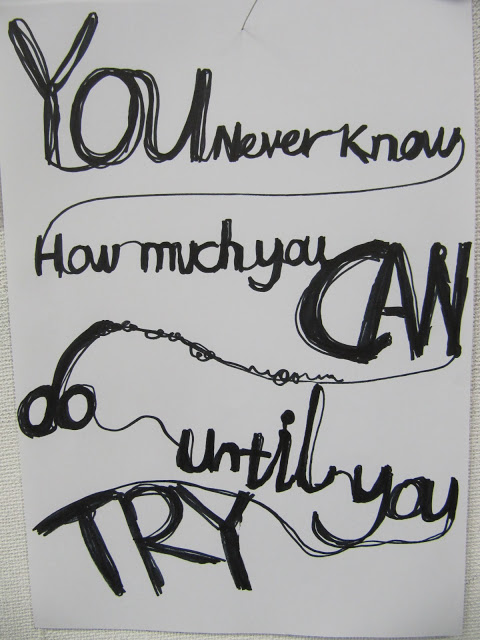 YOU Never Know
How much you CAN
do until you
TRY